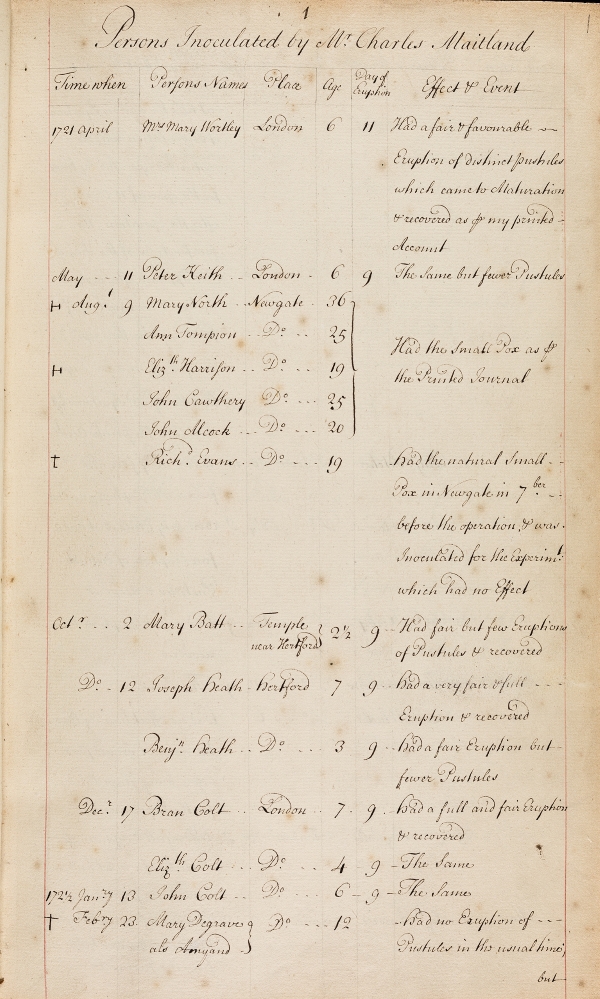 1
Persons Inoculated by Mr. Charles Maitland
Time when Persons Names Place Age Day of Eruption Effect & Event
1721 April Mrs Mary Wortley London 6 11 Had a fair & favourable
Eruption of distinct pustules
which came to Maturation
& recovered as ⅌ my printed
Account
May 11 Peter Keith London 6 9 The Same but fewer Pustules
Augt. 9 Mary North Newgate 36
Ann Tompion Do 25
Had the Small Pox as ⅌
Elizth Harrison Do 19
the Printed Journal
John Cawthery Do 25
John Alcock Do 20
† Richd. Evans Do 19 had the natural Small
Pox in Newgate in 7ber
before the operation, & was
Inoculated for the Experimt.
which had no Effect
Octr. 2 Mary Batt Temple near Hertford 2 1/2 9 Had fair but few Eruptions
of Pustules & recovered
Do 12 Joseph Heath hertford 7 9 had a very fair & full
Eruption & recovered
Benjn. Heath Do 3 9 had a fair Eruption but
fewer Pustules
Decr. 17 Bran Colt London 7 9 had a full and fair Eruption
& recovered
Elizth Colt Do 4 9 The Same
172½ Janry 13 John Colt Do 6 9 The Same
† Febry 23 Mary Degrave Do 19 had no Eruption of
als Amyand Pustules in the usual time;
but